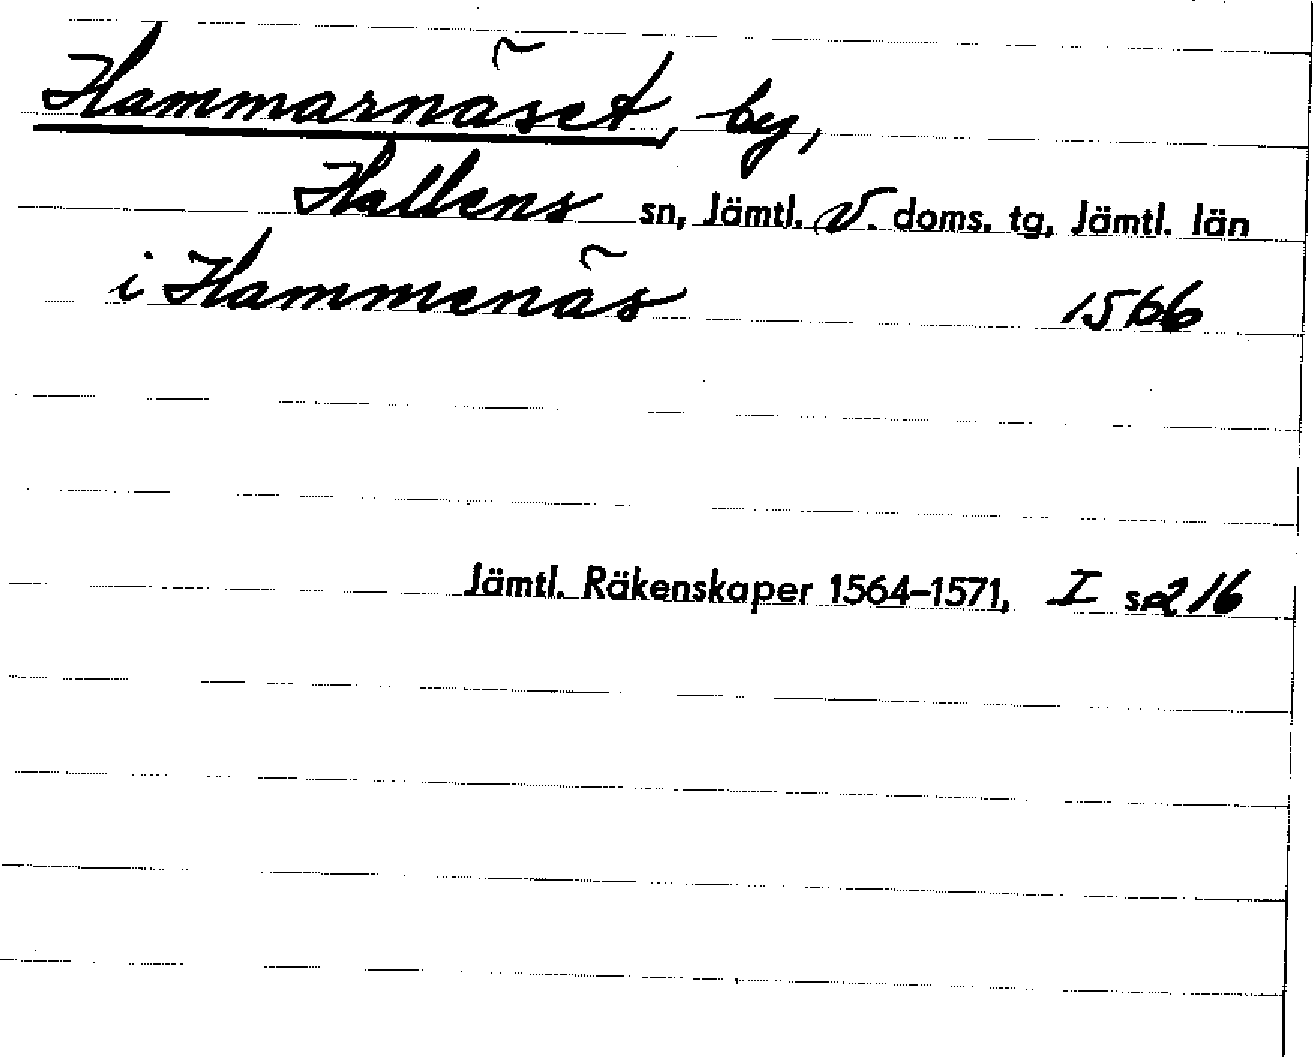 Hammarnäset, by,
Hallens sn, Jämtl. V. doms. tg, Jämtl. län
i Hammenäs 1566
Jämtl. Räkenskaper 1564–1571, I s. 216